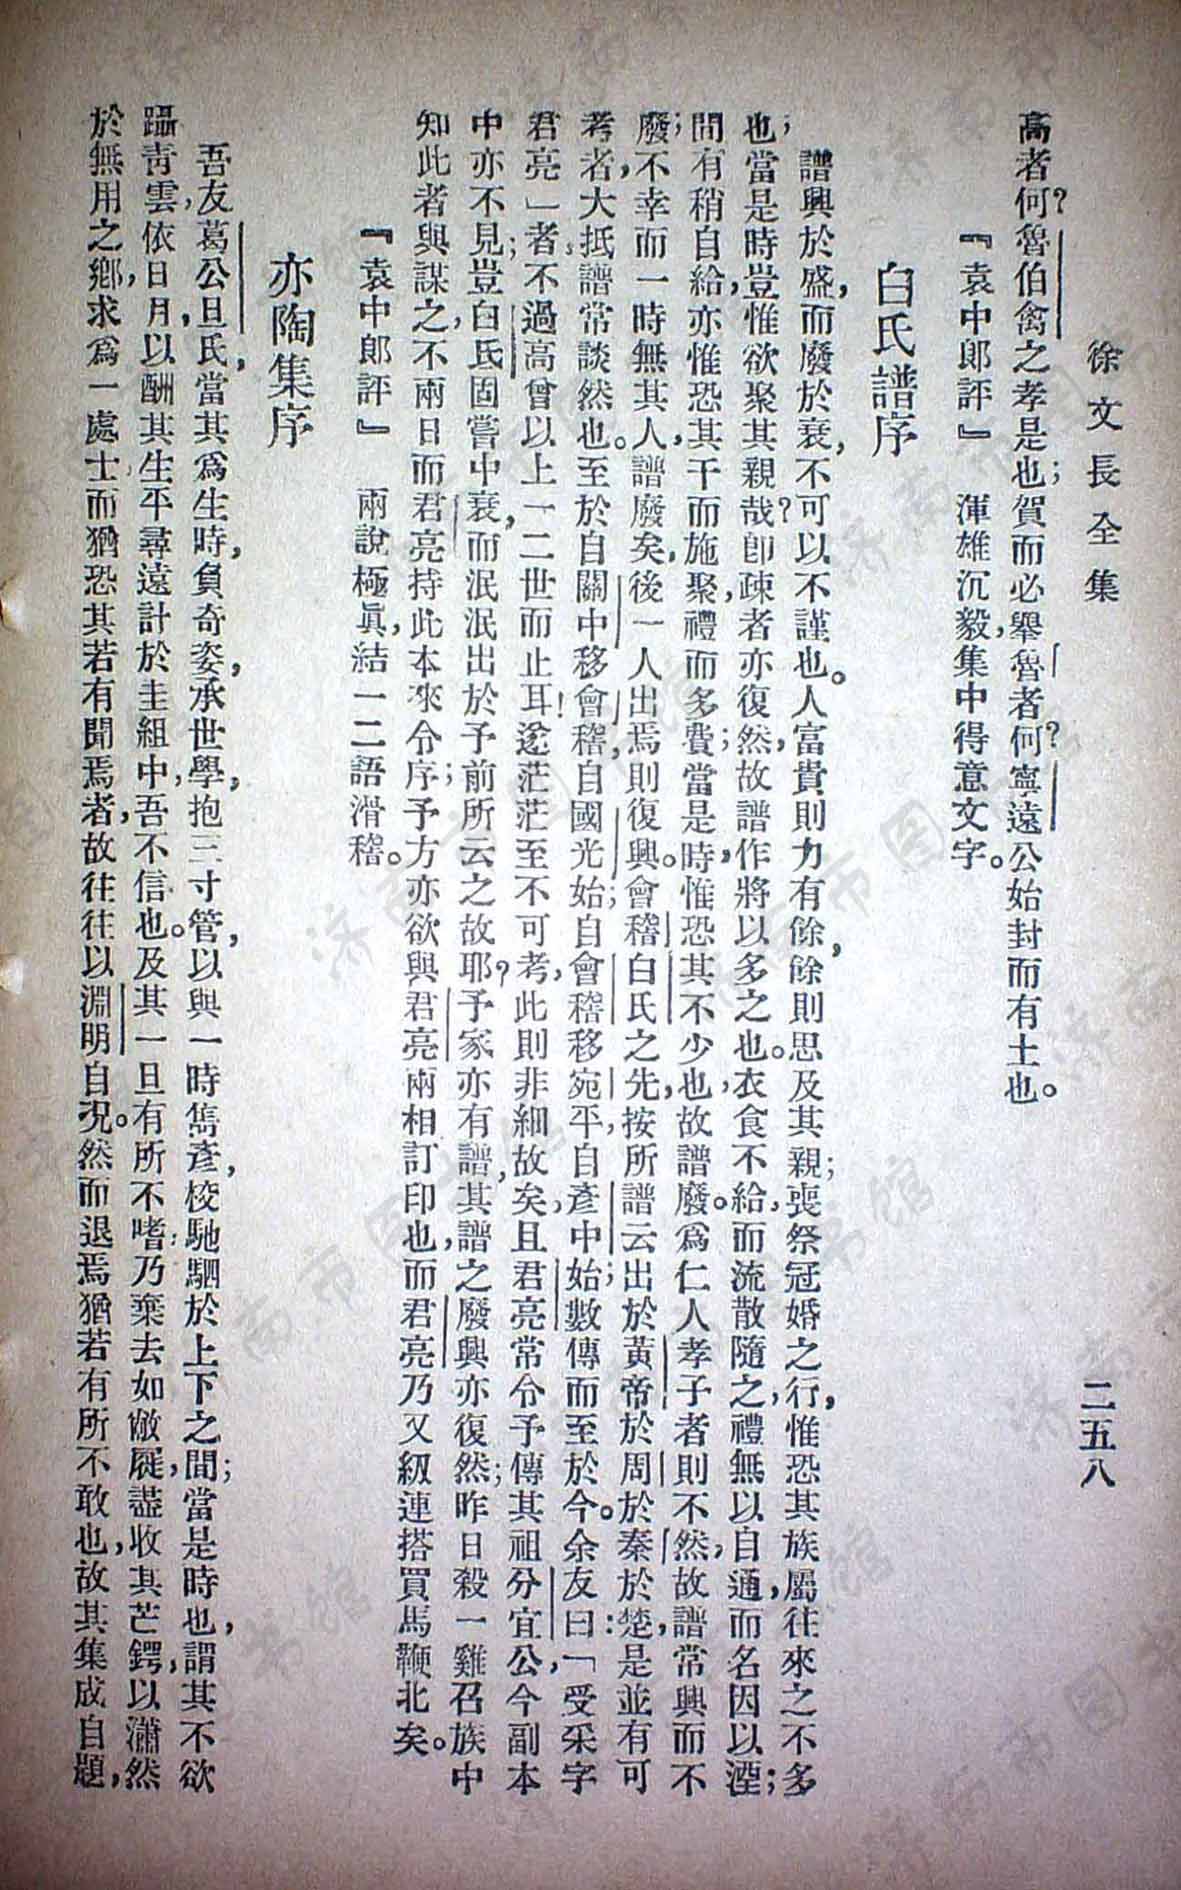 徐文長全集
二五八
高者何？魯伯禽之孝是也；賀而必舉魯者何？寧遠公始封而有土也。
『袁中郎評』　渾雄沉毅，集中得意文字。
白氏譜序
譜興於盛，而廢於衰，不可以不謹也。人富貴則力有餘，餘則思及其親；喪祭冠婚之行，惟恐其族屬往來之不多
也；當是時，豈惟欲聚其親哉？卽疎者亦復然，故譜作將以多之也。衣食不給，而流散隨之，禮無以自通，而名因以湮；
間有稍自給，亦惟恐其干而施聚，禮而多費；當是時，惟恐其不少也，故譜廢。爲仁人孝子者則不然，故譜常興而不
廢；不幸而一時無其人，譜廢矣，後一人出焉，則復興。會稽白氏之先，按所譜云：出於黃帝，於周於秦於楚，是並有可
考者，大抵譜常談然也。至於自關中移會稽，自國光始；自會稽移宛平，自彥中始；數傳而至於今。余友曰：「受采字
君亮」者，不過高曾以上一二世而止耳！逾茫茫至不可考，此則非細故矣，且君亮常令予傳其祖分宜公，今副本
中亦不見；豈白氏固嘗中衰，而泯泯出於予前所云之故耶？予家亦有譜，其譜之廢興亦復然；昨日殺一雞召族中
知此者與謀之，不兩日而君亮持此本來令序；予方亦欲與君亮兩相訂印也，而君亮乃又級連搭買馬鞭北矣。
『袁中郎評』　兩說極眞，結一二語滑稽。
亦陶集序
吾友葛公旦氏，當其爲生時，負奇姿，承世學，抱三寸管，以與一時雋彥，校馳駟於上下之間；當是時也，謂其不欲
躡靑雲，依日月，以酬其生平尋遠計於圭組中，吾不信也。及其一旦有所不嗜，乃棄去如敝屣，盡收其芒鍔，以瀟然
於無用之鄕，求爲一處士而猶恐其若有聞焉者，故往往以淵明自況。然而退焉猶若有所不敢也，故其集成自題，